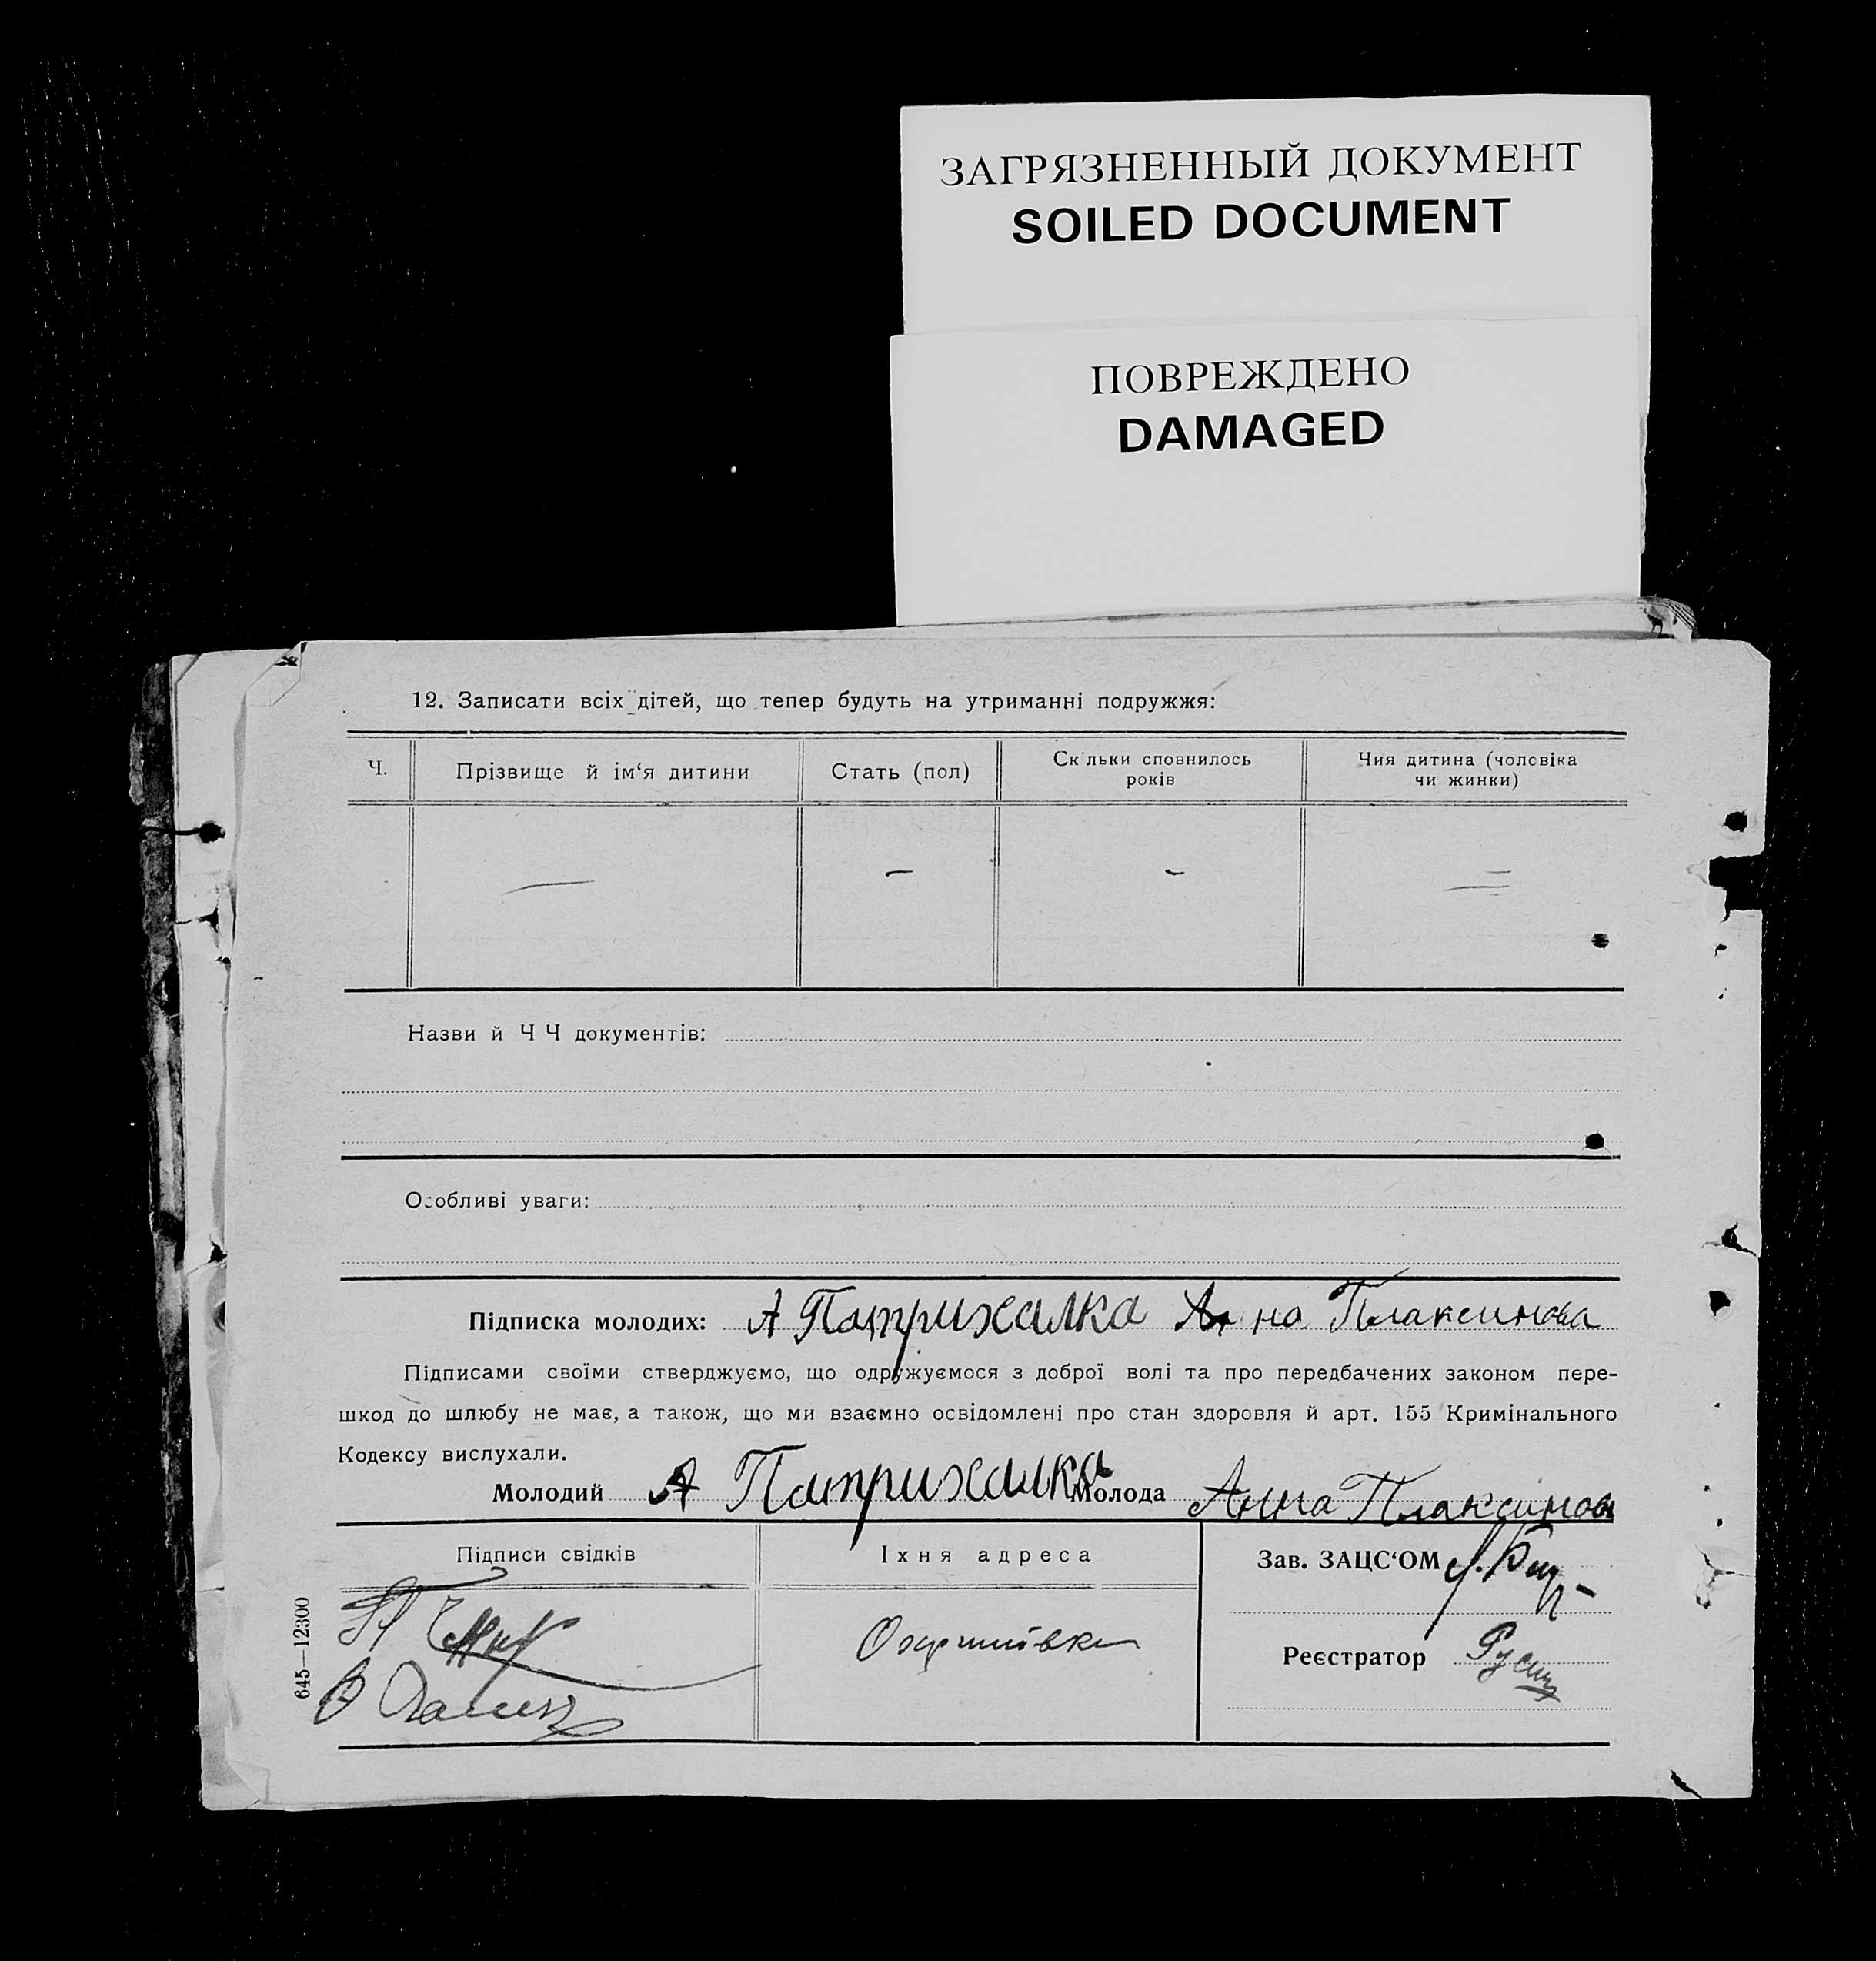 ЗАГРЯЗНЕННЫЙ ДОКУМЕНТ
SOILED DOCUMENT
ПОВРЕЖДЕНО
DAMAGED
12. Записати всіх дітей, що тепер будуть на утриманні подружжя:
Ч. Прізвище й ім‘я дитини Стать (пол) Скільки сповнилось років Чия дитина (чоловіка чи жинки)
— — — =
Назви й Ч Ч документів:
Особливі уваги:
Підписка молодих: А Патрихалка Анна Плаксинова
Підписами своїми стверджуємо, що одружуємося з доброї волі та про передбачених законом пере-
шкод до шлюбу не має, а також, що ми взаємно освідомлені про стан здоровля й арт. 155 Кримінального
Кодексу вислухали.
Молодий А Патрихалка Молода Анна Плаксинова
Підписи свідків Їхня адреса Зав. ЗАЦС‘ОМ
Реєстратор
645—12300